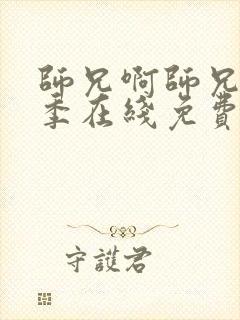 師兄啊師兄
季在綫免費
守護君